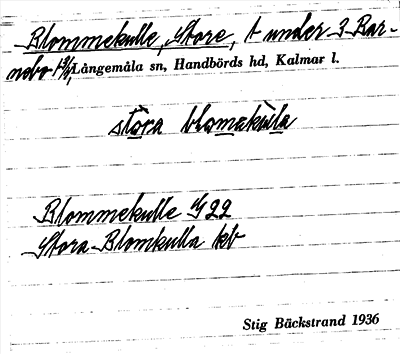 Blommekulle, Store, t under 3 Bar-
nebo
Långemåla sn, Handbörds hd, Kalmar l.
stòra blomekùla
Blommekulle G 22
Stora Blomkulla kb
Stig Bäckstrand 1936